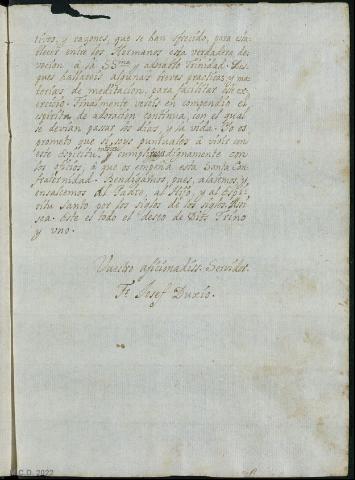 tivos, y razones, que se han ofrecido, para esta-
blecer entre los Hermanos esta verdadera de-
vocion à la SSma y adorable Trinidad. Des-
pues hallareis algunas breves practicas, y ma-
terias de meditacion, para facilitar el exer-
cicio. Finalmente vereis en compendio el
espiritu de adoracion continua, con el qual
se devian passar los dias, y la vida. Yo os
prometo que si sois puntuales à vivir con
este Espiritu, y cumplir dignamente con
los Oficios, à que os empeña esta Santa Con-
fraternidad. Bendigamos, pues, alabemos, y
ensalcemos al Padre, al Hijo, y al Espi-
ritu Santo por los siglos de los siglos.
sea. Este es todo el deseo de Dios Trino
y uno.
Vuestro aficionadiss. Servidor.
Fr. Josef Duxio.
M.C.D. 2022